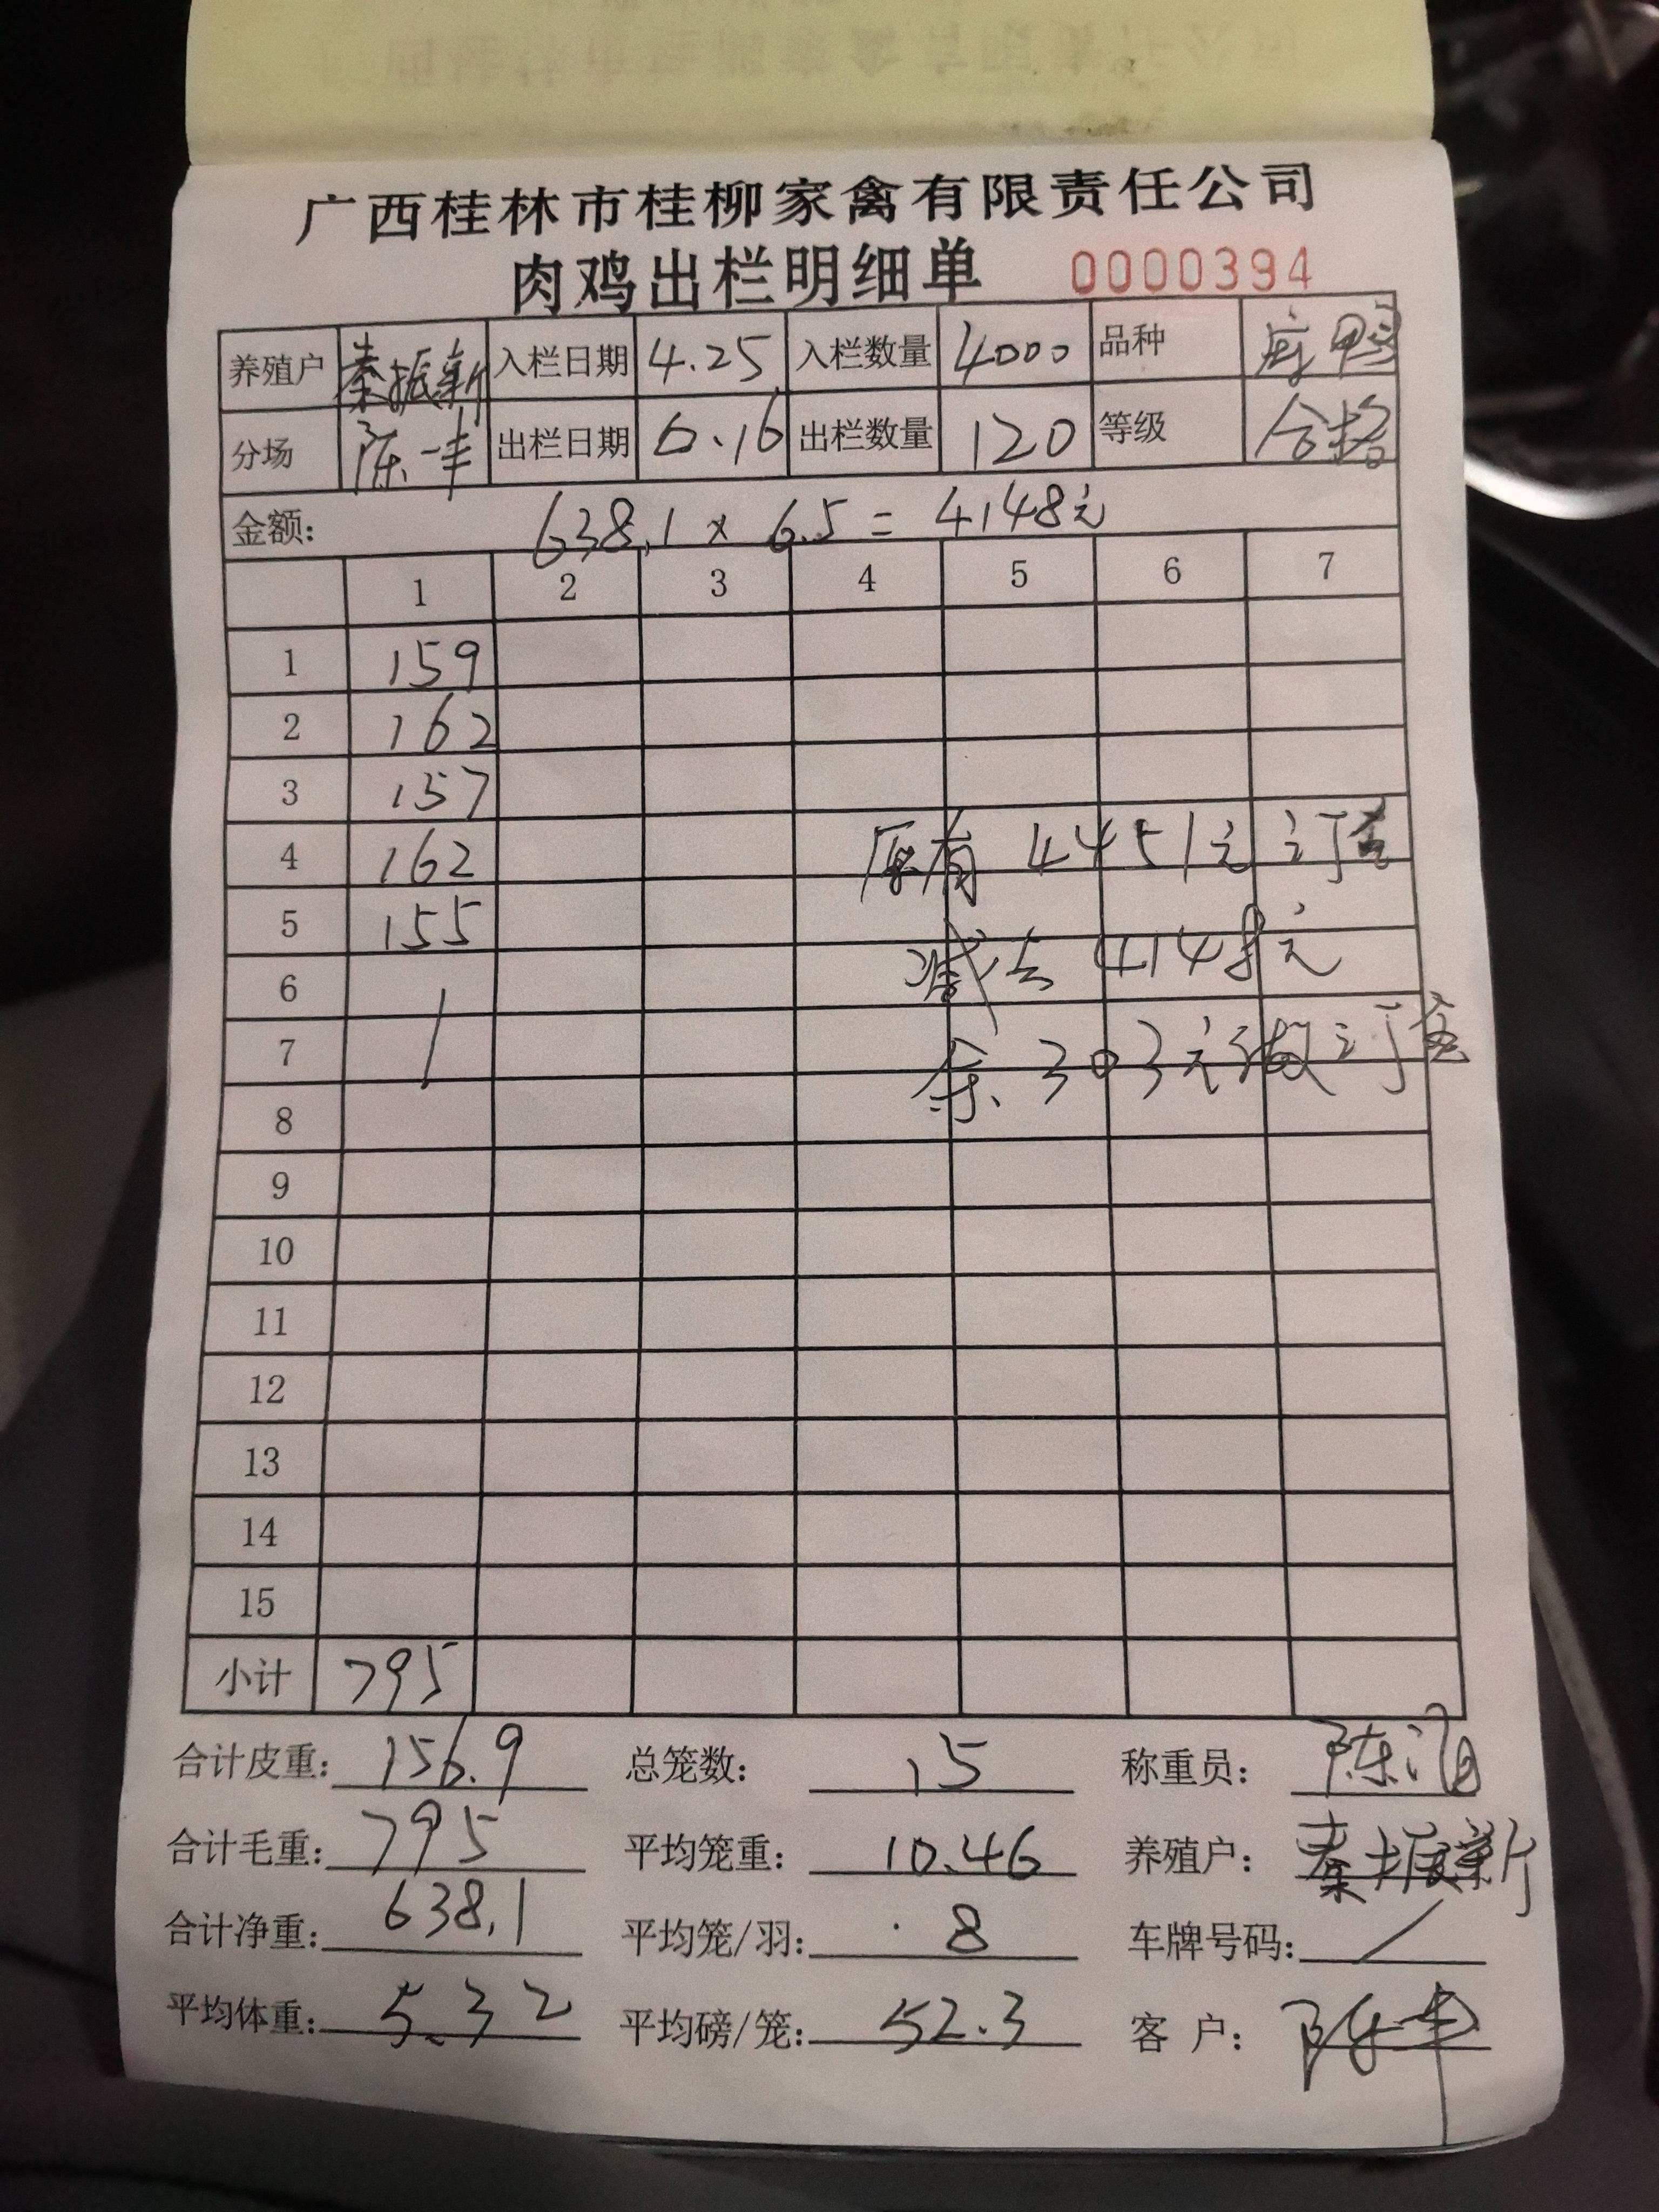 广西桂林市桂柳家禽有限责任公司
肉鸡出栏明细单 0000394
养殖户 秦振新 入栏日期 4.25 入栏数量 4000 品种 麻鸭
分场 陈一丰 出栏日期 6.16 出栏数量 120 等级 合格
金额: 638.1 x 6.5 = 4148元
1 2 3 4 5 6 7
1 159
2 162
3 157
4 162 原有 4451元 订金
5 155 减去 4148元
6
7 余 303元做订金
8
9
10
11
12
13
14
15
小计 795
合计皮重: 156.9 总笼数: 15 称重员: 陈
合计毛重: 795 平均笼重: 10.46 养殖户: 秦振新
合计净重: 638.1 平均笼/羽: 8 车牌号码: /
平均体重: 5.32 平均磅/笼: 52.3 客 户: 陈一丰